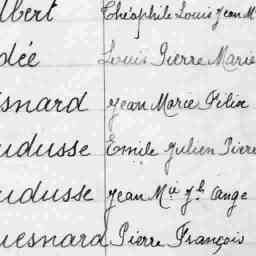 lbert Théophile Louis Jean M
dée Louis Pierre Marie
snard Jean Marie Félix
udusse Emile Julien Pierr
udusse Jean Mie Jh Ange
uesnard Pierre François